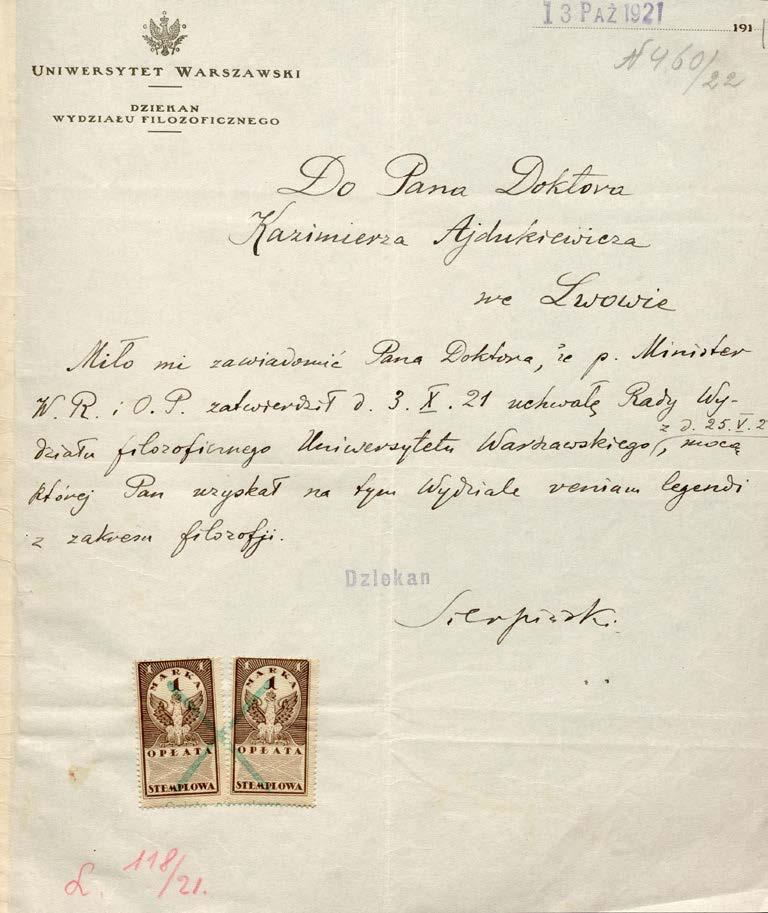 13 PAŹ 1921
191
N 460/22
UNIWERSYTET WARSZAWSKI
DZIEKAN
WYDZIAŁU FILOZOFICZNEGO
Do Pana Doktora
Kazimierza Ajdukiewicza
we Lwowie
Miło mi zawiadomić Pana Doktora, że p. Minister
W. R. i O. P. zatwierdził d. 3. X. 21 uchwałę Rady Wy-
z d. 25. V. 2
działu filozoficznego Uniwersytetu Warszawskiego, mocą
której Pan uzyskał na tym Wydziale veniam legendi
z zakresu filozofji.
Dziekan
Sierpiński.
1 MARKA 1
1
OPŁATA
STEMPLOWA
1 MARKA 1
1
OPŁATA
STEMPLOWA
L. 118/21.